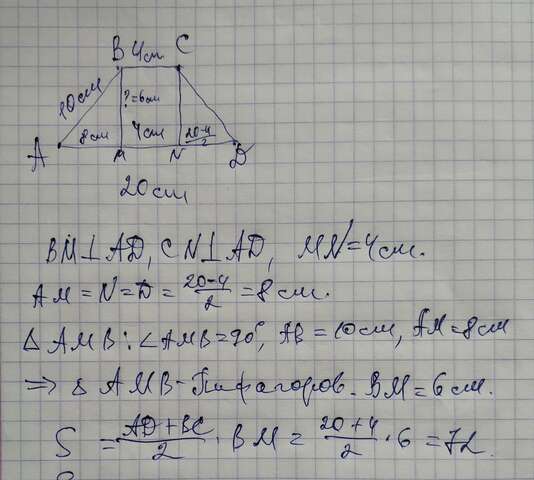 B 4см C
10см
?=6см
A 8см M 4см N 20-4/2 D
20см
BM⊥AD, CN⊥AD, MN=4см.
AM=N=D=20-4/2=8см.
Δ AMB: ∠AMB=90°, AB=10см, AM=8см
⇒ Δ AMB-Пифагоров. BM=6см.
S=AD+BC/2·BM=20+4/2·6=72.